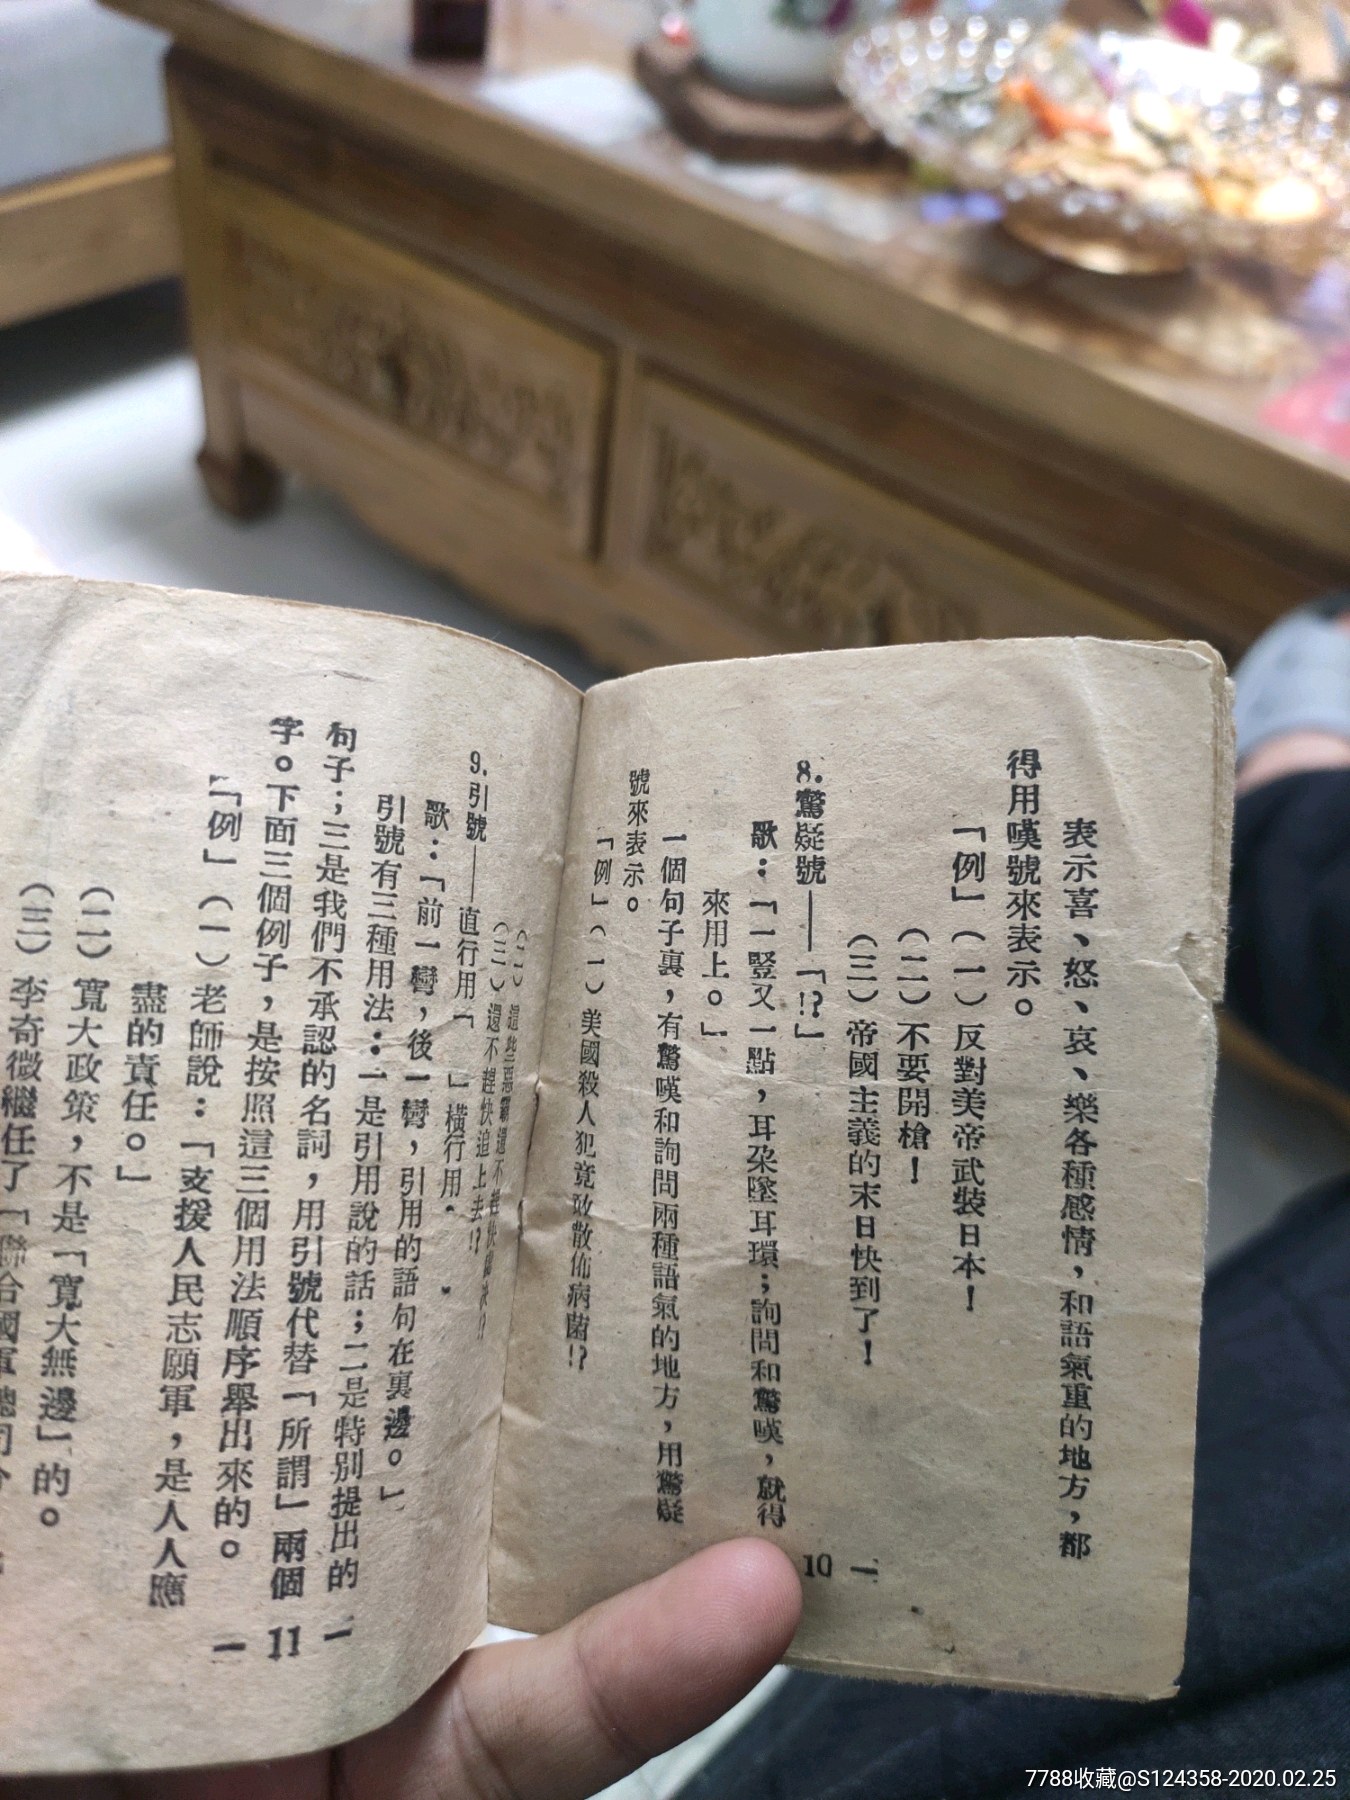 表示喜、怒、哀、樂各種感情，和語氣重的地方，都
得用嘆號來表示。
「例」（一）反對美帝武裝日本！
（二）不要開槍！
（三）帝國主義的末日快到了！
8.驚疑號——「!?」
歌：「一豎又一點，耳朶墜耳環；詢問和驚嘆，就得
來用上。」
一個句子裏，有驚嘆和詢問兩種語氣的地方，用驚疑
號來表示。
「例」（一）美國殺人犯竟敢散佈病菌!?
10 —
（二）這些惡霸還不趕快
（三）還不趕快追上去!?
9.引號——直行用「　」橫行用
歌：「前一彎，後一彎，引用的語句在裏邊。」
引號有三種用法：一是引用說的話；二是特別提出的
句子；三是我們不承認的名詞，用引號代替「所謂」兩個
字。下面三個例子，是按照這三個用法順序舉出來的。
「例」（一）老師說：「支援人民志願軍，是人人應
盡的責任。」
（二）寬大政策，不是「寬大無邊」的。
（三）李奇微繼任了「聯合國軍總司令
— 11 —
7788收藏@S124358-2020.02.25